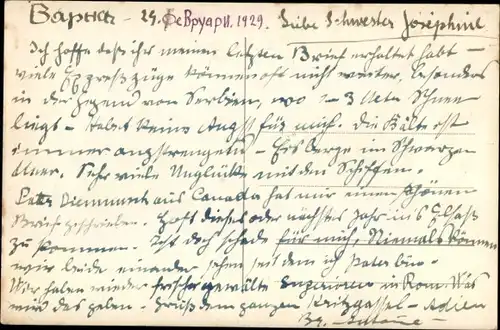 Варна - 25. Февруарй. 1929. Liebe Schwester Joséphine
Ich hoffe daß ihr meinen letzten Brief erhaltet habt -
viele Expresszüge können oft nicht weiter, besonders
in der Gegend von Serbien, wo 2-3 Meter Schnee
liegt - Habet keine Angst für mich. Die Kälte ist
immer anstrengend - Eisberge im Schwarzen
Meer. Sehr viele Unglücke mit den Schiffen.
Pater aus Canada hat mir einen schönen
Brief geschrieben. Hofft dieses oder nächstes Jahr ins Elsaß
zu kommen. Ist doch schade für mich, Niemals können
wir beide einander sehen seit dem ich Pater bin.
Wir haben wieder frischer gewählte in Rom. Was
wird das geben. Grüß dem ganzen Kritzgassel - Adieu
Br. Antoine -